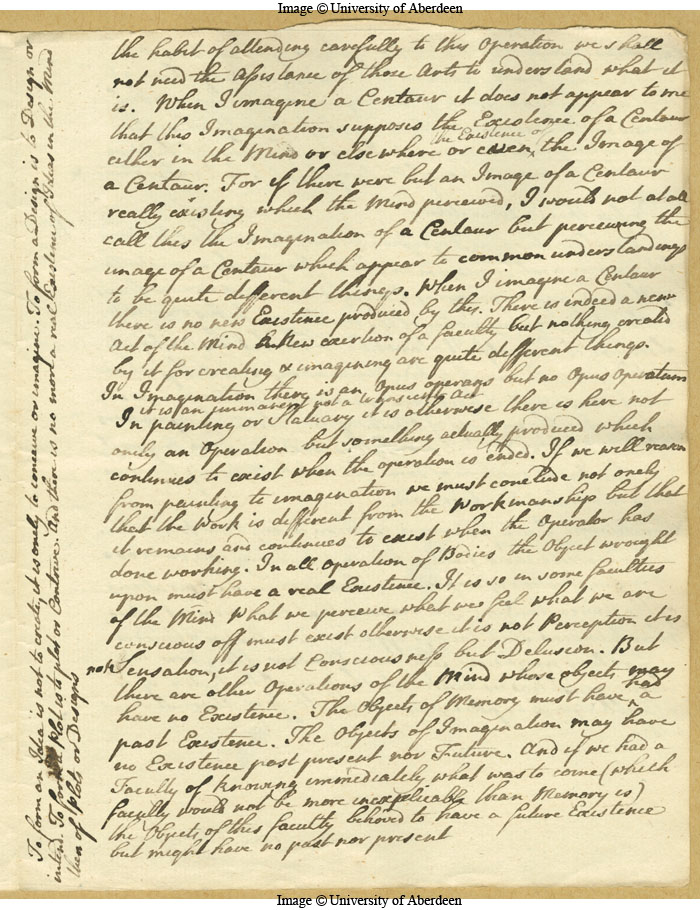 Image © University of Aberdeen
the habit of attending carefully to this Operation we shall
not need the Assistance of those Arts to understand what it
is. When I imagine a Centaur it does not appear to me
that this Imagination supposes the Existence of a Centaur
the Existence of
either in the Mind or elsewhere or even the Image of
a Centaur. For if there were but an Image of a Centaur
really existing which the Mind perceived, I would not at all
call this the Imagination of a Centaur but perceiving the
image of a Centaur which appear to common understandings
to be quite different things. When I imagine a Centaur
there is no new Existence produced by this. There is indeed a new
Act of the Mind A New exertion of a faculty but nothing created
by it for creating & imagining are quite different things.
In Imagination there is an Opus operans but no Opus Operatum
it is an immanent not a transient act
In painting or Statuary it is otherwise there is here not
onely an Operation but something actually produced which
continues to exist when the operation is ended. If we will reason
from painting to imagination we must conclude not onely
that the Work is different from the Workmanship but that
it remains and continues to exist when the Operator has
done working. In all operation of Bodies the Object wrought
upon must have a real Existence. It is so in some faculties
of the Mind what we perceive what we feel what we are
conscious off must exist otherwise it is not Perception it is
not Sensation, it is not Consciousness but Delusion. But
there are other Operations of the Mind whose objects may
had
have no Existence. The Objects of Memory must have a
past Existence. The Objects of Imagination may have
no Existence past present nor Future. And if we had a
Faculty of knowing immediately what was to come (which
faculty would not be more inexplicable than Memory is)
the Objects of this faculty behoved to have a future Existence
but might have no past nor present
To form an Idea is not to create, it is onely to conceive or imagine. To form a Design is to Design or
intend. To form a Plot is to plot or Contrive. And there is no more a real Existence of Ideas in the Mind
then of Plots or Designs
Image © University of Aberdeen